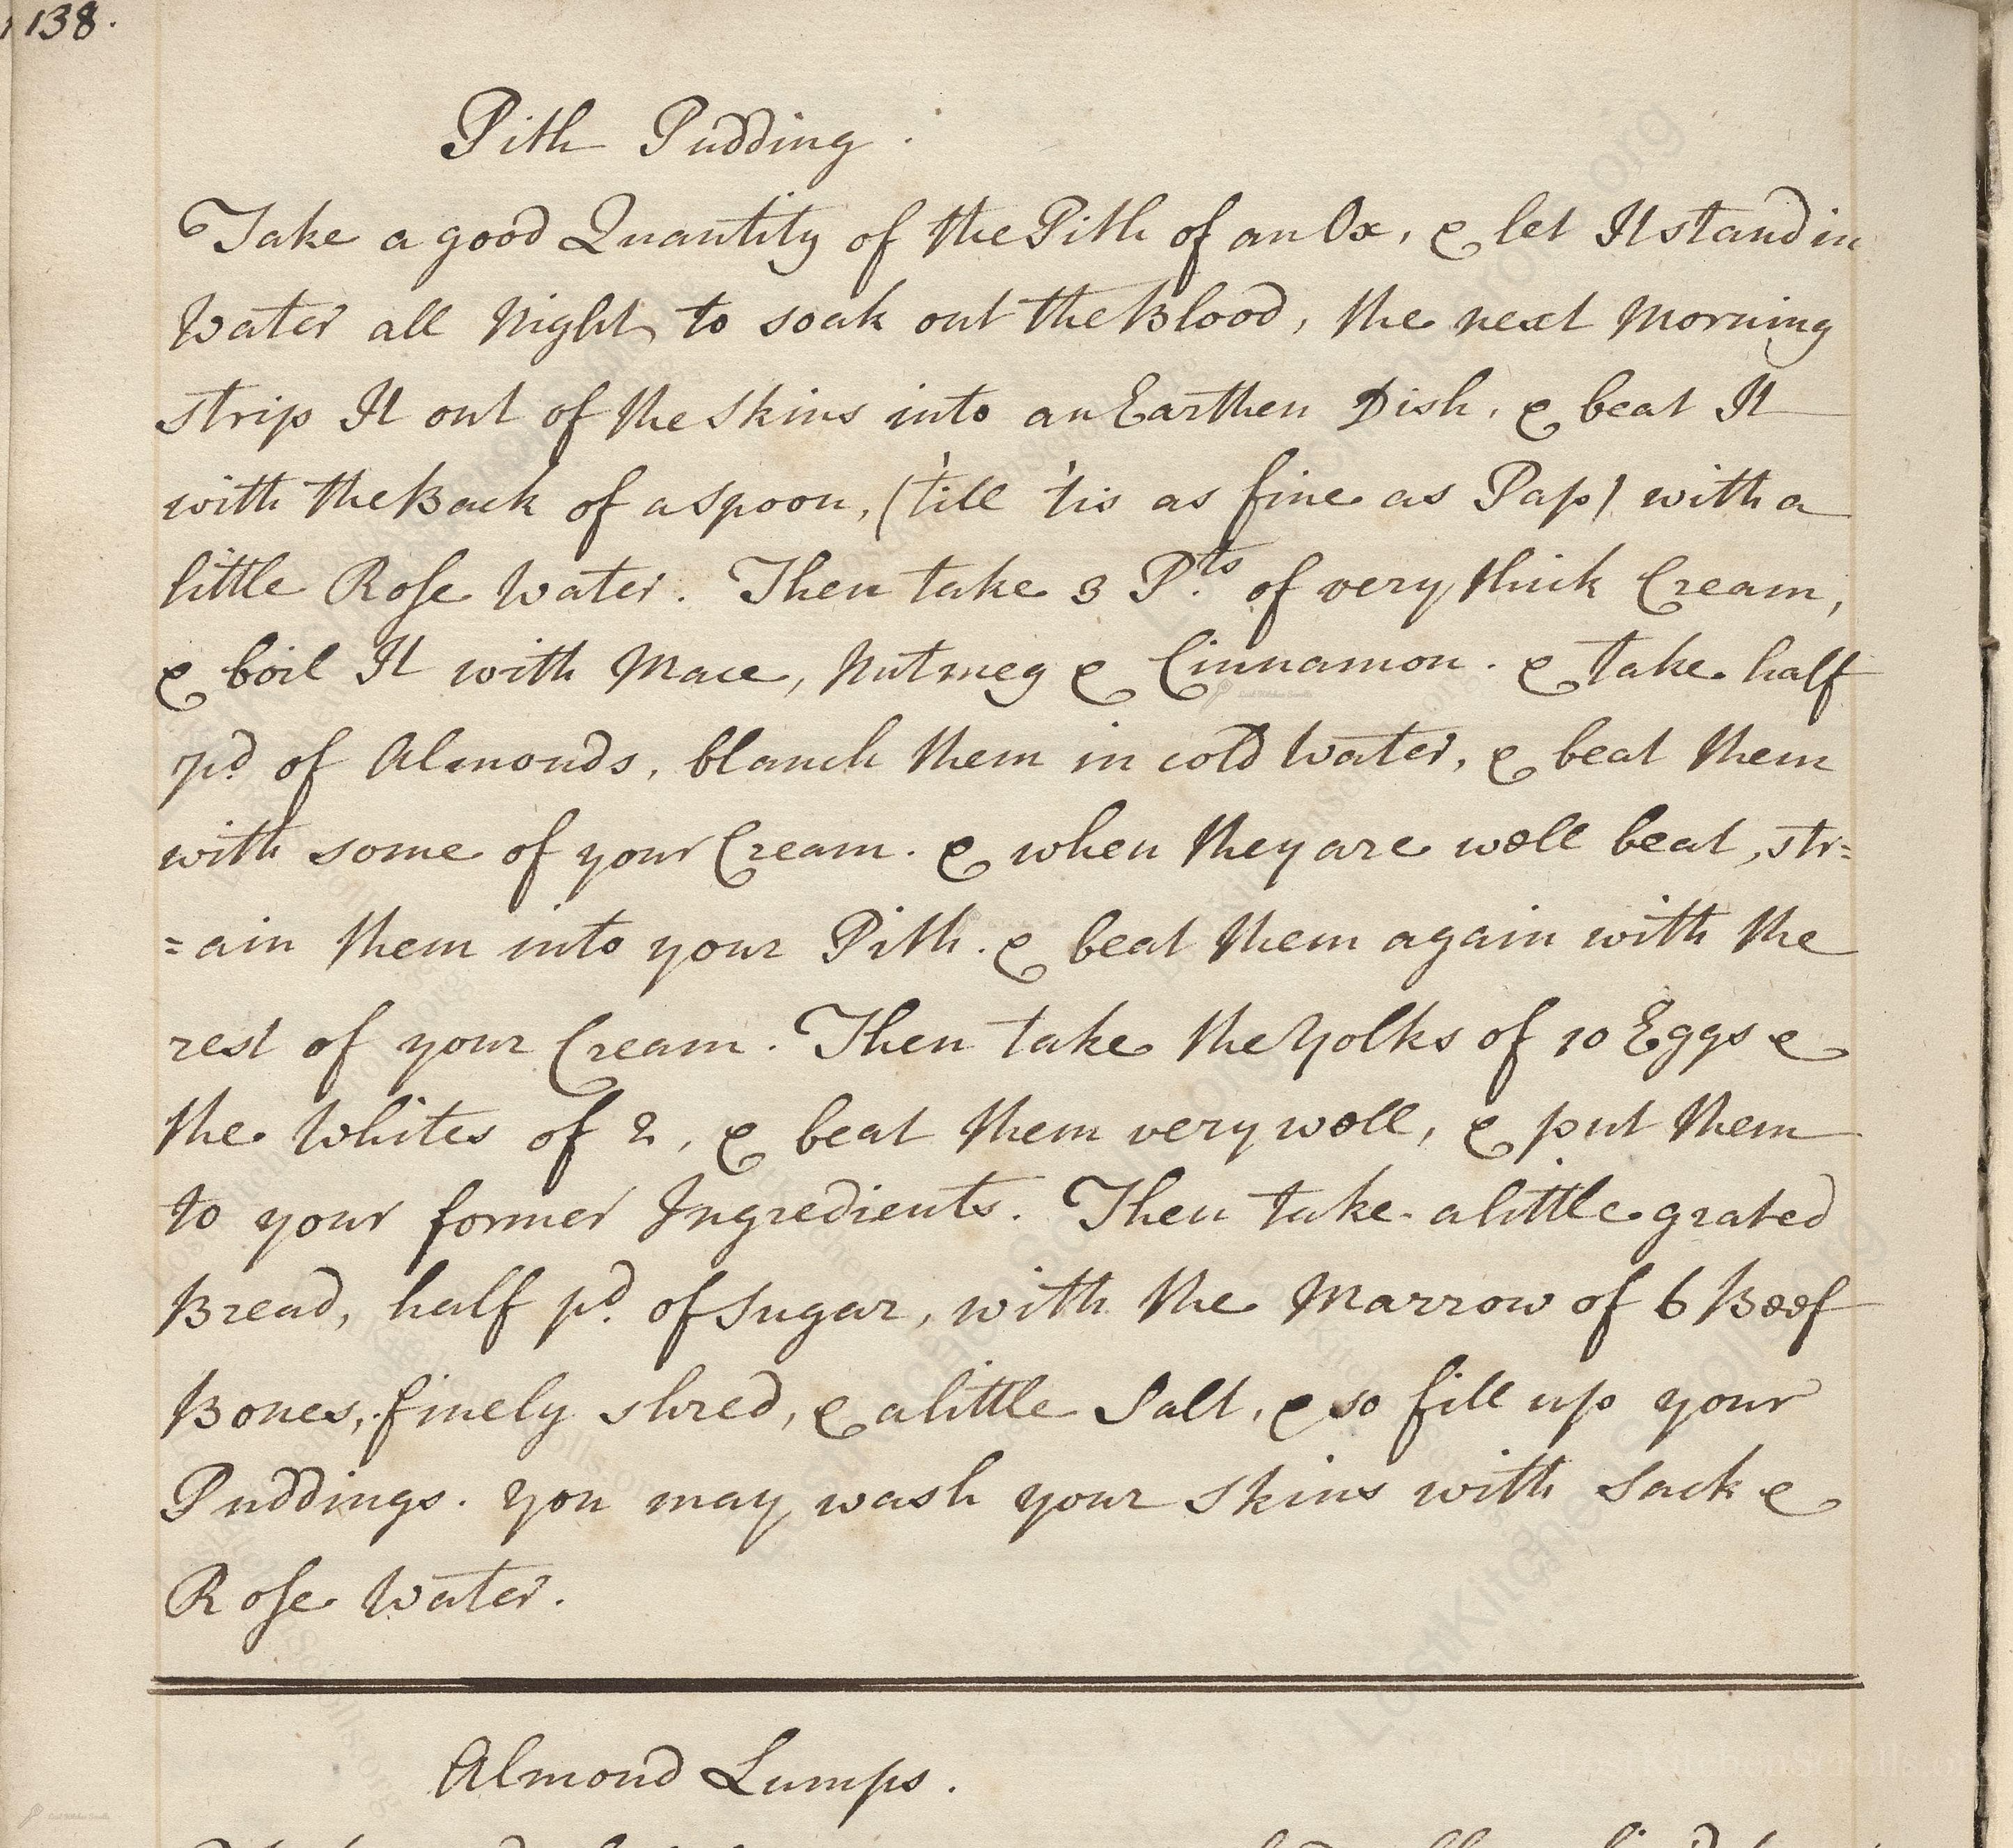 138.
Pith Pudding.
Take a good Quantity of the Pith of an Ox, & let It stand in
Water all Night, to soak out the Blood, the next Morning
strip It out of the Skins into an Earthen Dish, & beat It
with the Back of a spoon, ('till 'tis as fine as Pap) with a
little Rose Water. Then take 3 P.ts of very thick Cream,
& boil It with Mace, Nutmeg & Cinnamon. & take half
pd. of Almonds, blanch them in cold Water, & beat them
with some of your Cream. & when they are well beat, str=
=ain them into your Pith. & beat them again with the
rest of your Cream. Then take the Yolks of 10 Eggs &
the Whites of 2, & beat them very well, & put them
to your former Ingredients. Then take a little grated
Bread, half pd. of Sugar, with the Marrow of 6 Beef
Bones, finely shred, & a little Salt, & so fill up your
Puddings. You may wash your Skins with Sack &
Rose Water.
Almond Lumps.